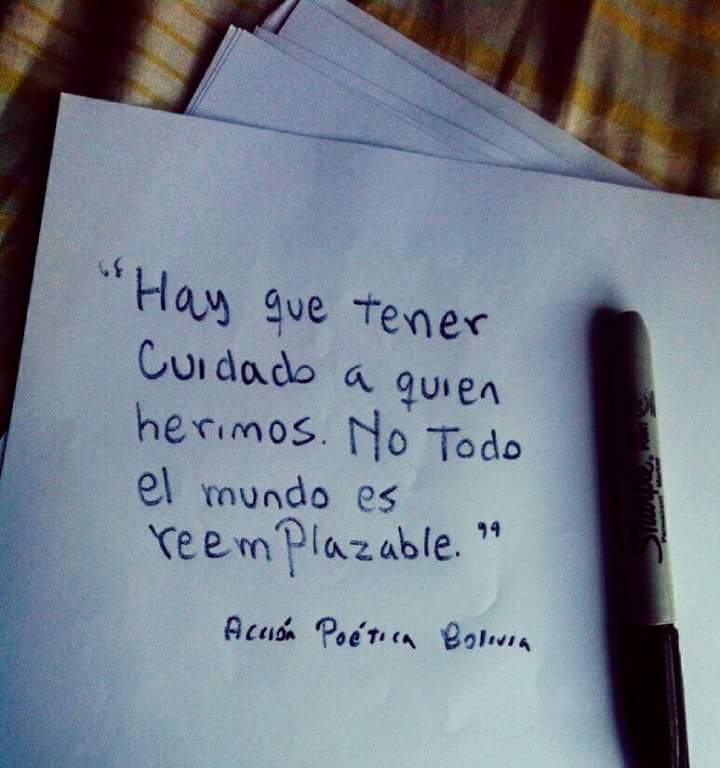 “Hay que tener
Cuidado a quien
herimos. No Todo
el mundo es
reemPlazable.”
Acción Poética Bolivia
Sharpie